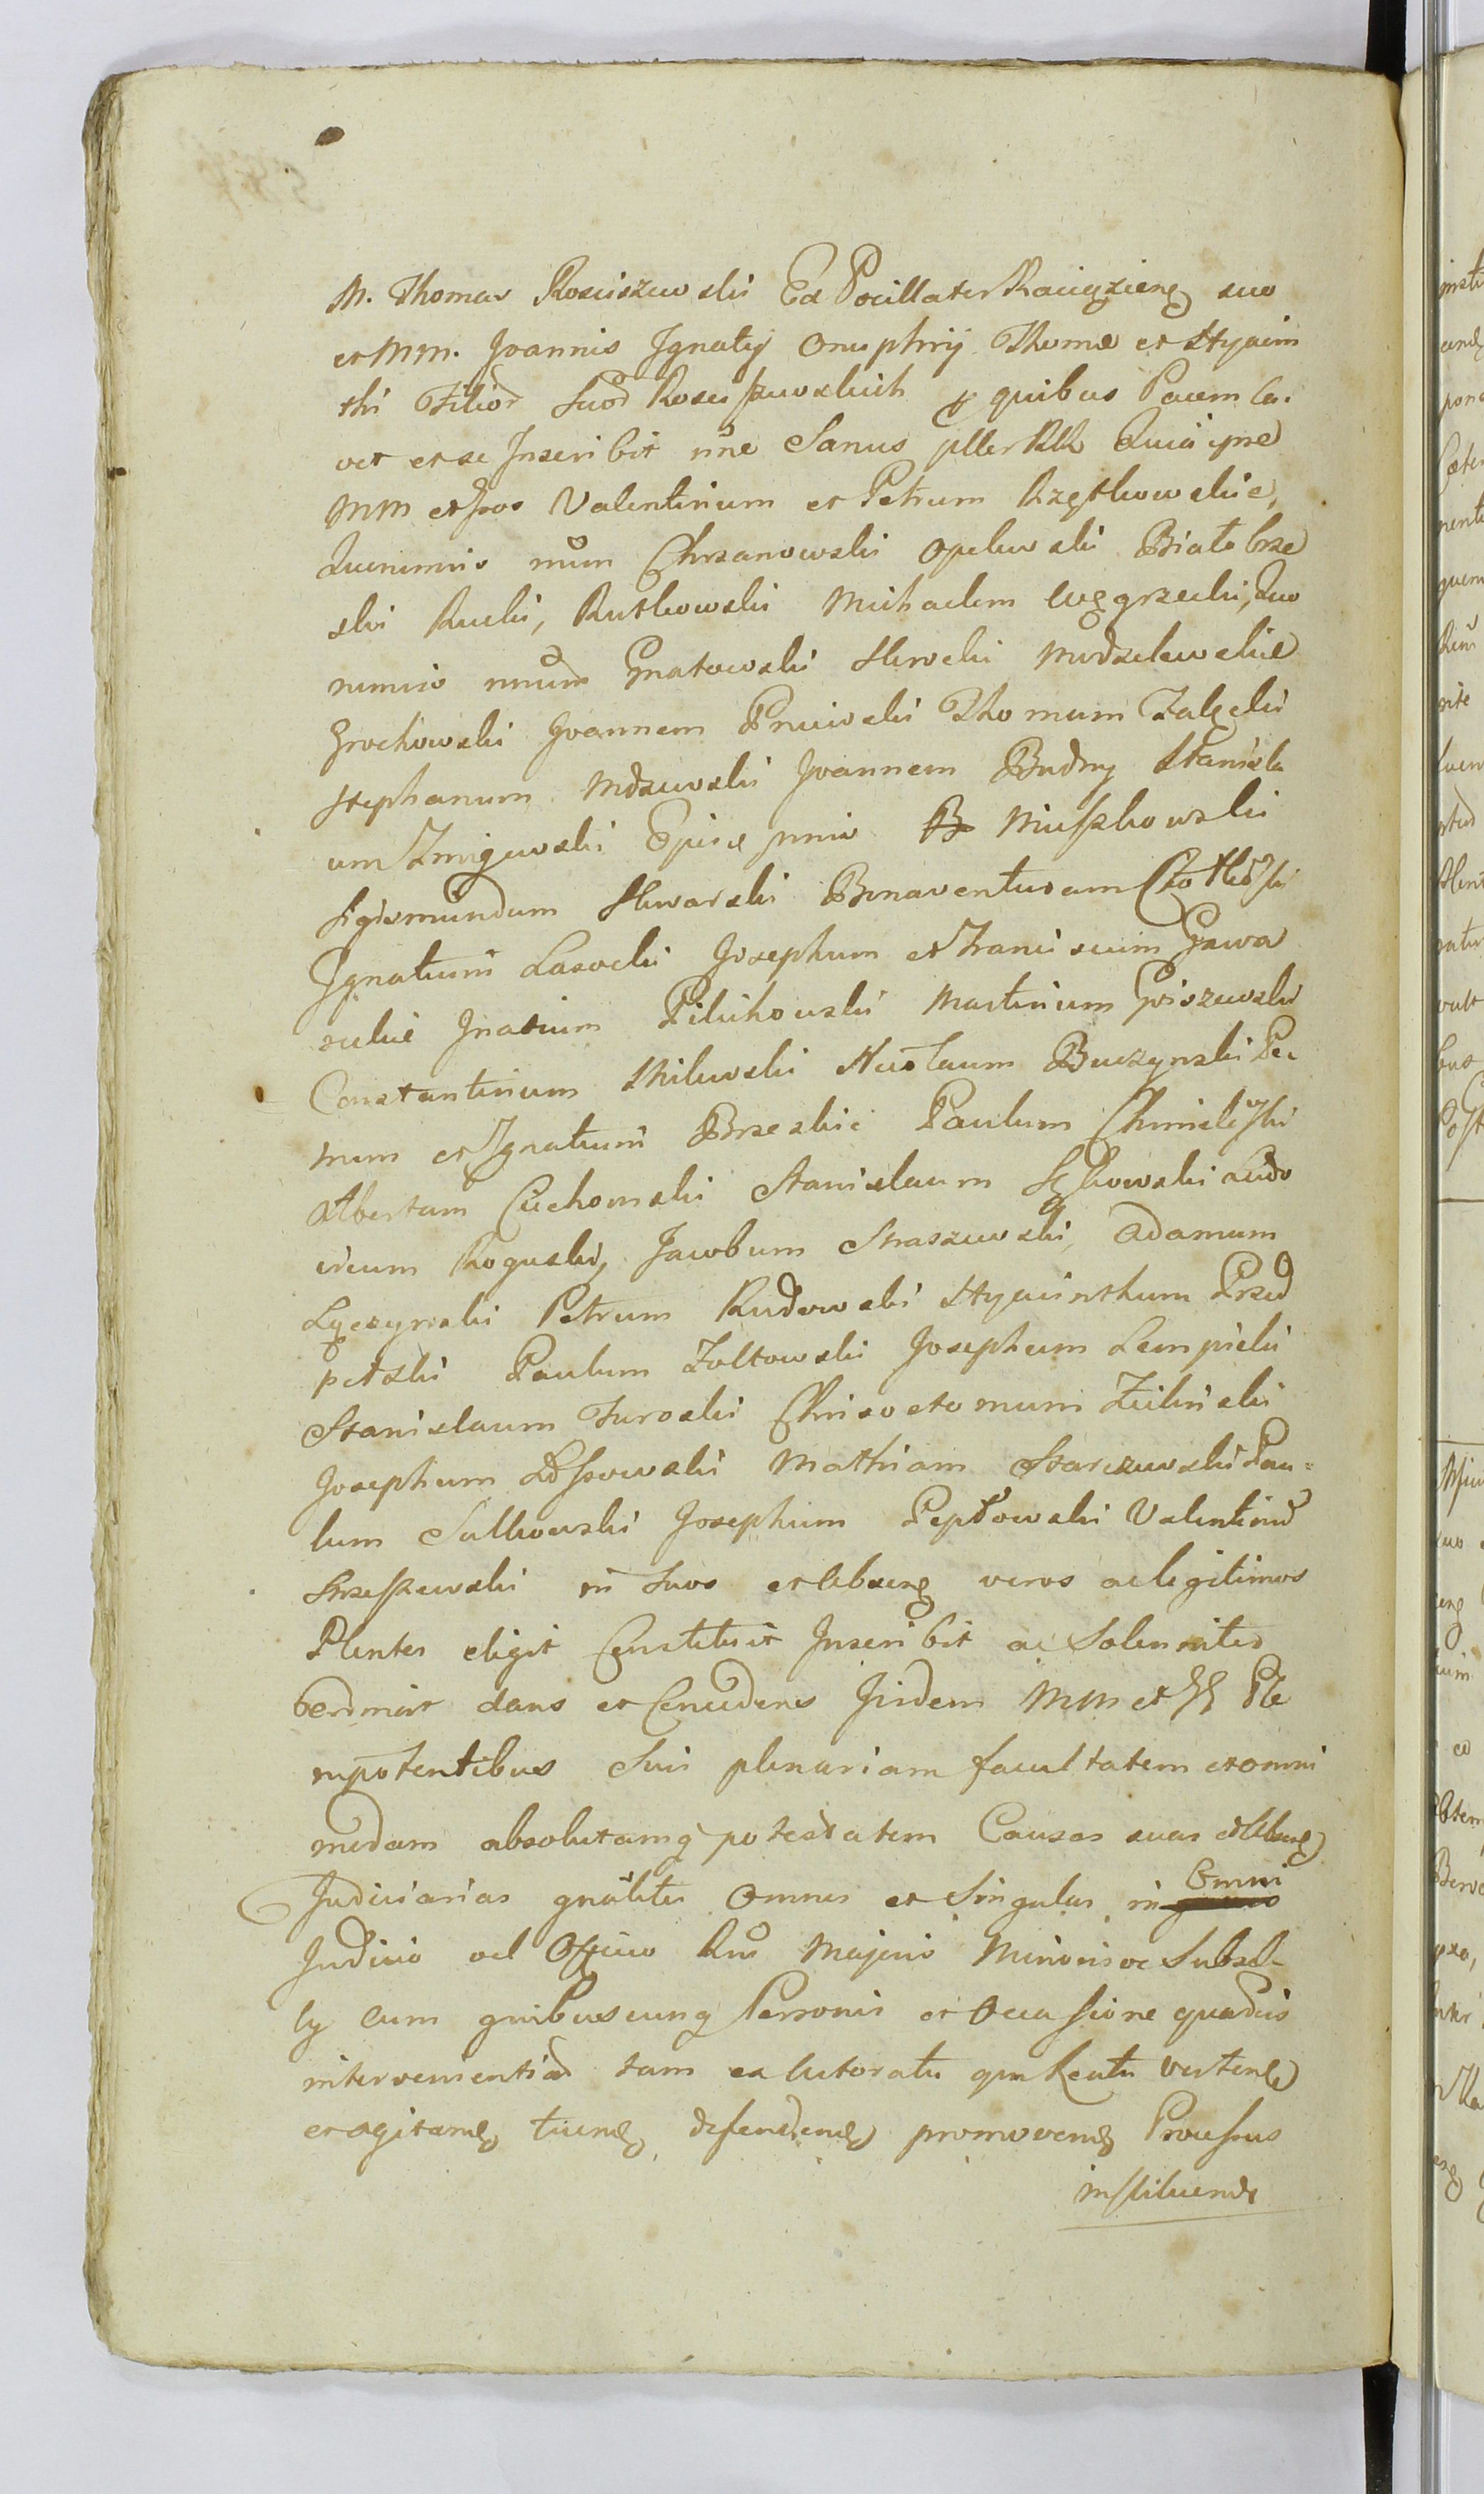 M. Thomas Rosciszewski Ex Pocillater Raciązieng suo
et Mm. Joannis Ignatij Onuphrij Thomæ et Hyacin
thi Filior Suor Roscisszewskich p quibus Pacem Ca.
vet et se Inscribit nõe Sanus pller RR Quia ipse
MM et Gsos Valentinum et Petrum Rzętkowskie,
Quinimis nům Chrzanowski Opelewski Białobrze
ski Rucki, Rutkowski Michaelem Węgrzecki, Quo
nimiio nnům Gnatowski Skwski Modzelewskie
Grochowski Joannem Pniewski Thomam Załęski
Stephanum Mdzewski Joannem Budny Stanisla
um Zmijewski Episc pnio B Miesszkowski
Sigismundum Skwarski Bonaventuram Chotkoski
Ignatium Lasocki Josephum et Franciscum Gawa
reckie Gnatium Pilichowski Martinum Goszewski
Constantinum Milewski Nicolaum Buczynski Pe
trum et Ignatium Brzeskie Paulum Chmielewski
Albertum Ciechomski Stanislaum Sękowski Ludo
vicum Roguski, Jacobum Straszewski, Adamum
Lęczynski Petrum Rudowski Hyacinthum Przed
petski Paulum Zołtowski Josephum Lempicki
Stanislaum Turoski Chrisostomum Zielinski
Josephum Ldssowski Mathiam Starczewski Pau=
lum Sulkowski Josephum Pepłowski Valentinũ
Strzesszewski in Suos et Absenq veros ac legitimos
Plentes eligit Constituit Inscribit ac Solenniter
berdinat dans et Concedens Jisdem MM et GG Ple
nipotentibus Suis plenariam facultatem et omni
modam absolutamq potestatem Causas suas et Absenq
Judiciarias gnãliter Omnes et Singulas in Omni
Judicio vel Officio Rni Majoris Minorisve Subsel-
ly cum quibuscunq Personis et Occasione quadcis
intervenientiad tam ex Actoratu qm Reatu verteng
et agitang tueng defendeng promoveng Processus
instituendi